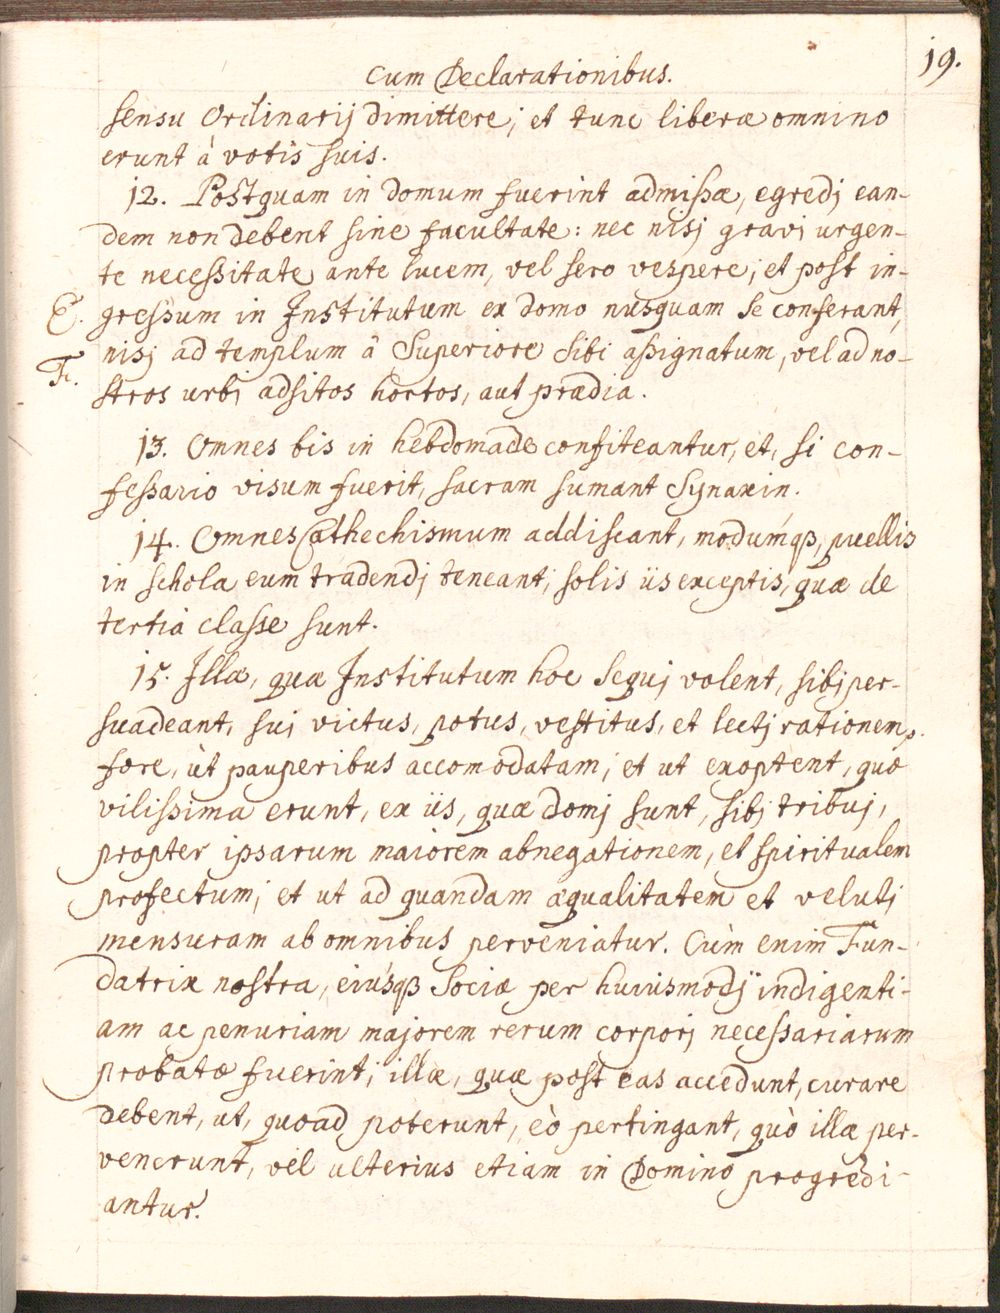 19.
Cum Declarationibus.
sensu Ordinarij dimittere; et tunc liberæ omnino
erunt à votis suis.
12. Postquam in domum fuerint admißæ, egredj ean-
dem non debent sine facultate: nec nisj gravj urgen-
te necessitate ante lucem, vel sero vespere; et post in-
E. greßum in Institutum ex domo nusquam se conferant,
F. nisj ad templum â Superiore sibi aßignatum, vel ad no-
stros urbj adsitos hortos, aut prædia.
13. Omnes bis in hebdomade confiteantur, et, si con-
feßario visum fuerit, sacram sumant Synaxin.
14. Omnes Cathechismum addiscant, modúmqß, puellis
in schola eum tradendj teneant, solis iis exceptis, quæ de
tertiâ classe sunt.
15. Illæ, quæ Institutum hoc sequj volent, sibj per-
suadeant, suj victus, potus, vestitus, et lectj rationem
fore, ùt pauperibus accomodatam; et ut exoptent, quæ
vilißima erunt, ex iis, quæ domj sunt, sibj tribuj,
propter ipsarum maiorem abnegationem, et spiritualem
profectum; et ut ad quandam æqualitatem et velutj
mensuram ab omnibus perveniatur. Cùm enim Fun-
datrix nostra, eiúsqß Sociæ per huiusmodj indigenti-
am ac penuriam majorem rerum corporj necessariarum
probatæ fuerint; illæ, quæ post eas accedunt, curare
debent, ut, quoad poterunt, eò pertingant, quò illæ per-
venerunt, vel ulterius etiam in Domino progredi-
antur.